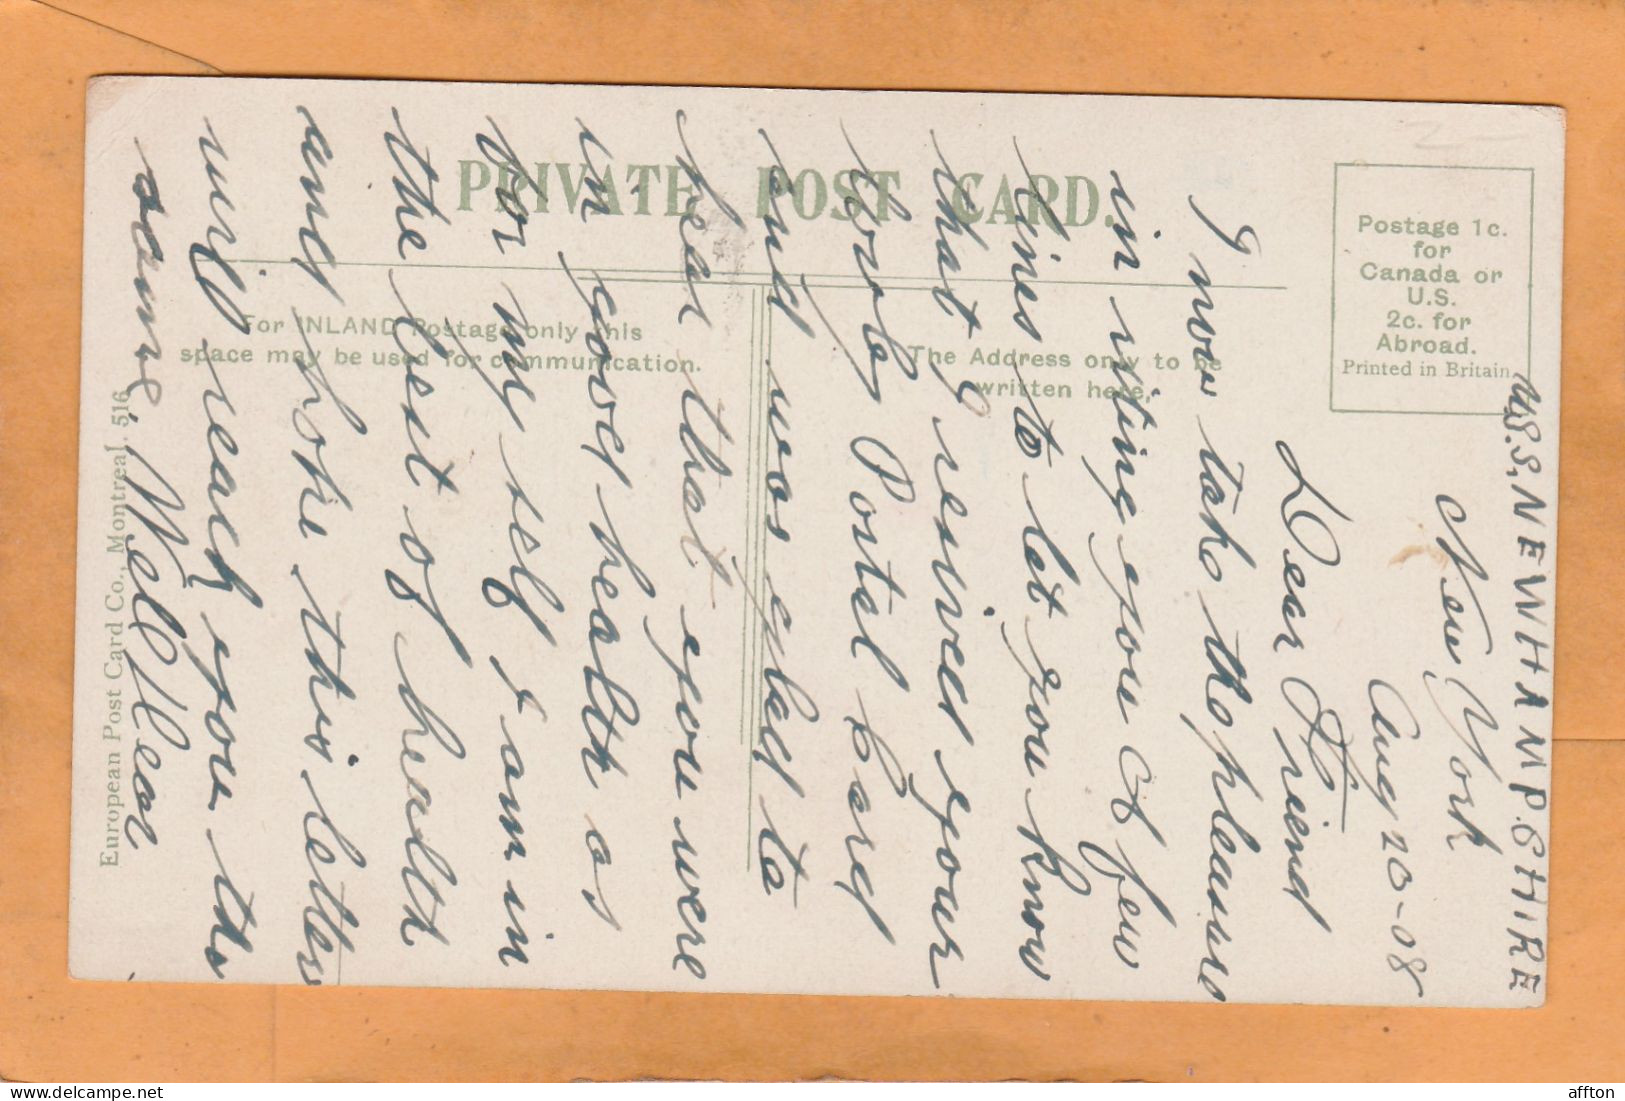 U.S.S. NEW HAMPSHIRE
New York
Aug 20-08
Dear Friend
I now take the pleasure
in riting you A few
lines to let you know
that I resived your
lovly Postel Card
and was glad to
hear that you were
in good health as
for my self I am in
the best of health
and hope this letter
will reach you the
same. Well Dear
PRIVATE POST CARD.
For INLAND Postage only this
space may be used for communication.
The Address only to be
written here.
Postage 1c.
for
Canada or
U.S.
2c. for
Abroad.
Printed in Britain.
European Post Card Co., Montreal. 516
affton